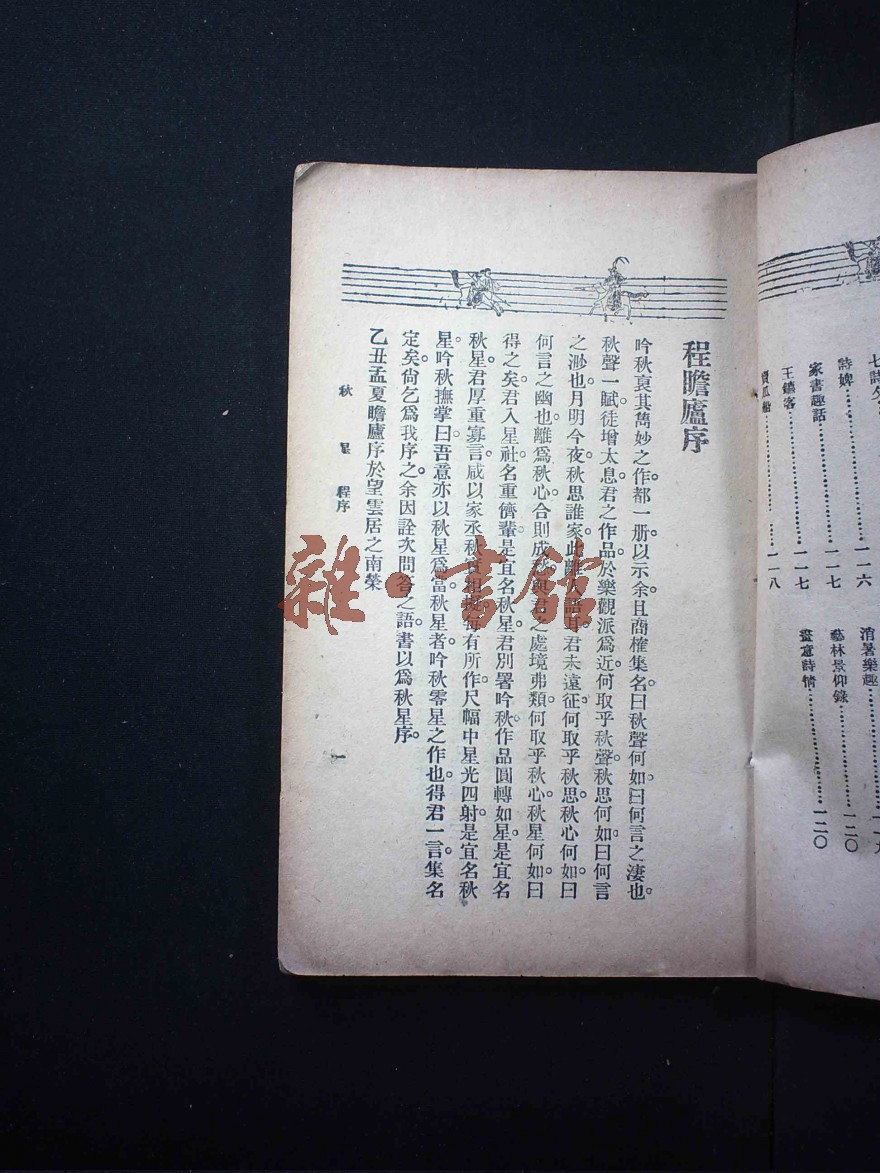 程瞻廬序
吟秋裒其雋妙之作。都一册。以示余。且商榷集名。曰秋聲何如。曰何言之淒也。
秋聲一賦。徒增太息。君之作品。於樂觀派爲近。何取乎秋聲。秋思何如。曰何言
之渺也。月明今夜。秋思誰家。此離人語耳。君未遠征。何取乎秋思。秋心何如。曰
何言之幽也。離爲秋心。合則成愁。與君之處境弗類。何取乎秋心。秋星何如。曰
得之矣。君入星社。名重儕輩。是宜名秋星。君別署吟秋。作品圓轉如星。是宜名
秋星。君厚重寡言。咸以家丞秋實相擬。每有所作。尺幅中星光四射。是宜名秋
星。吟秋撫掌曰。吾意亦以秋星爲當。秋星者。吟秋零星之作也。得君一言。集名
定矣。尙乞爲我序之。余因詮次問答之語。書以爲秋星序。
乙丑孟夏瞻廬序於望雲居之南榮
秋星 程序
一
詩婢……一一六
家書趣話……一一七
王鐵客……一一七
瓜船……一一八
消暑樂趣……一一九
藝林景仰錄……一二〇
畫意詩情……一二〇
雜·書館